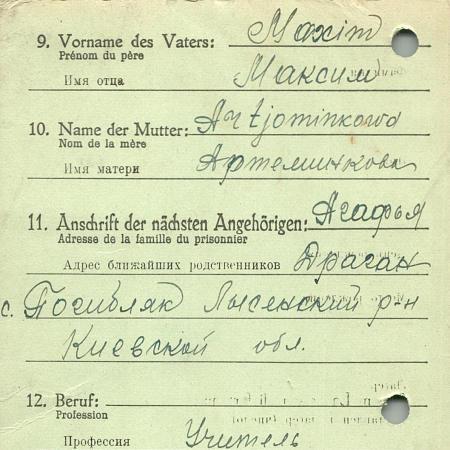 9. Vorname des Vaters: Maxim
Prénom du père
Имя отца Максим
10. Name der Mutter: Artjominkowa
Nom de la mère
Имя матери Артеминкова
11. Anschrift der nächsten Angehörigen: Агафья
Adresse de la famille du prisonnier
Адрес ближайших родственников Драган
с. Погибляк Лысенский р-н
Киевской обл.
12. Beruf:
Profession
Профессия Учитель